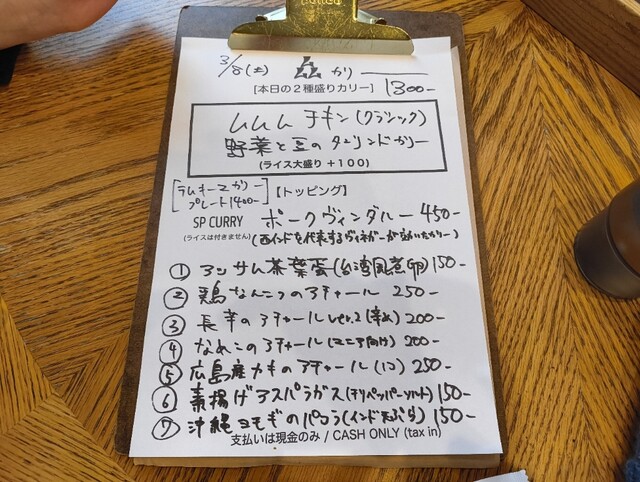 3/8(土) ム かり
[本日の2種盛りカリー] 1300-
ムムム チキン(クラシック)
野菜と豆のタマリンドカリー
(ライス大盛り +100)
ラムキーマカリー
プレート1400-
[トッピング]
SP CURRY ポークヴィンダルー 450-
(ライスは付きません) (西インドを代表するヴィネガーが効いたカリー)
① アッサム茶葉蛋(台湾風煮卵) 150-
② 鶏なんこつのアチャール 250-
③ 長芋のアチャールver.2(辛め) 200-
④ なめこのアチャール(マニア向け) 200-
⑤ 広島産カキのアチャール(1コ) 250-
⑥ 素揚げアスパラガス(チリペッパーソルト) 150-
⑦ 沖縄ヨモギのパコラ(インド天ぷら) 150-
支払いは現金のみ / CASH ONLY (tax in)